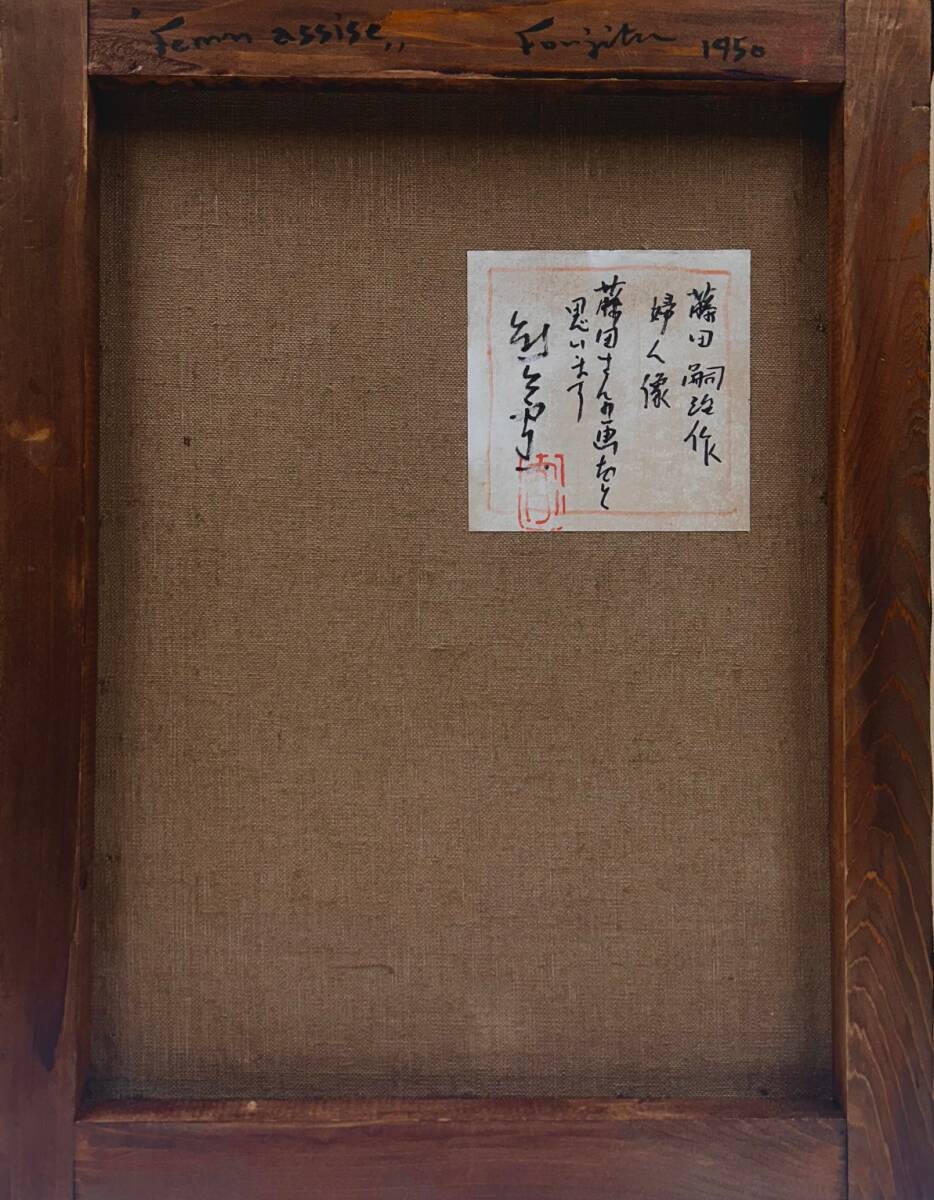 "Femm assise„ Foujita 1950
藤田嗣治作
婦人像
藤田さんの画だと
思います